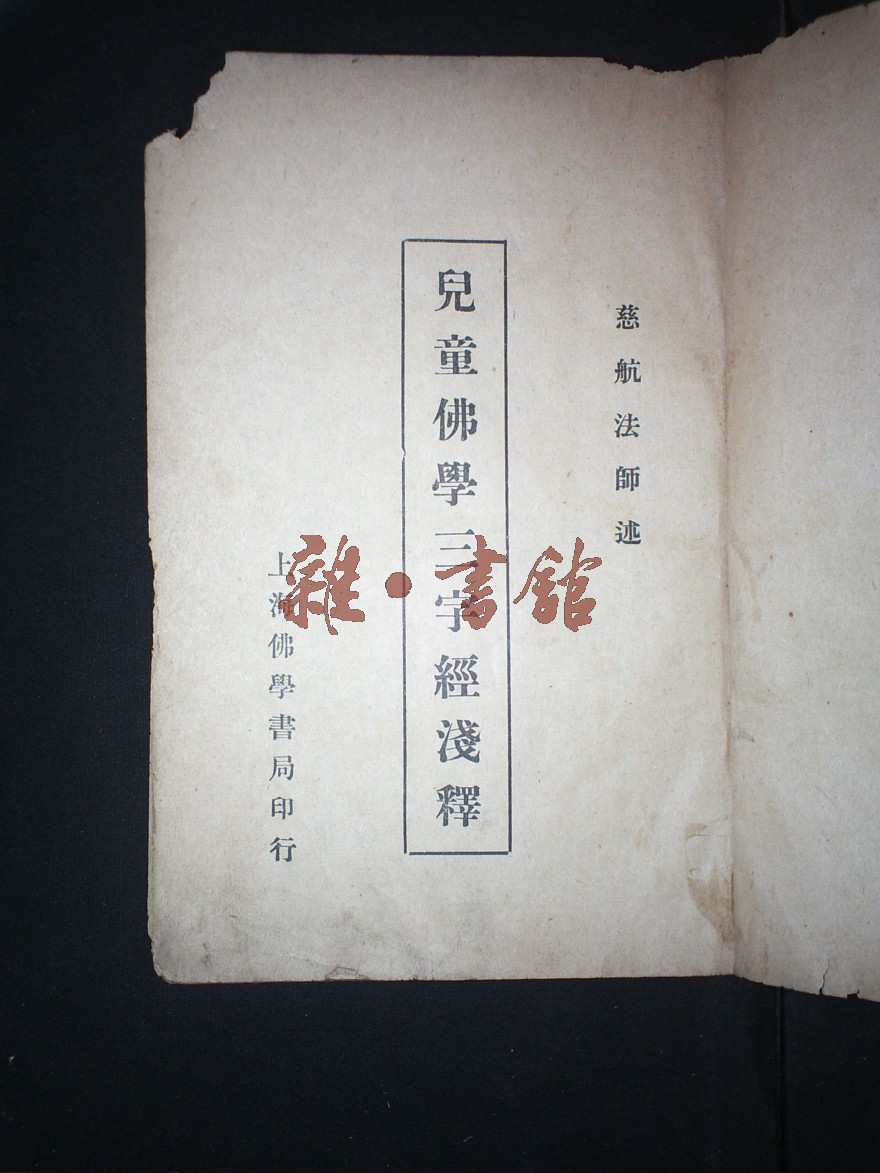 慈航法師述
兒童佛學三字經淺釋
上海佛學書局印行
雜·書館